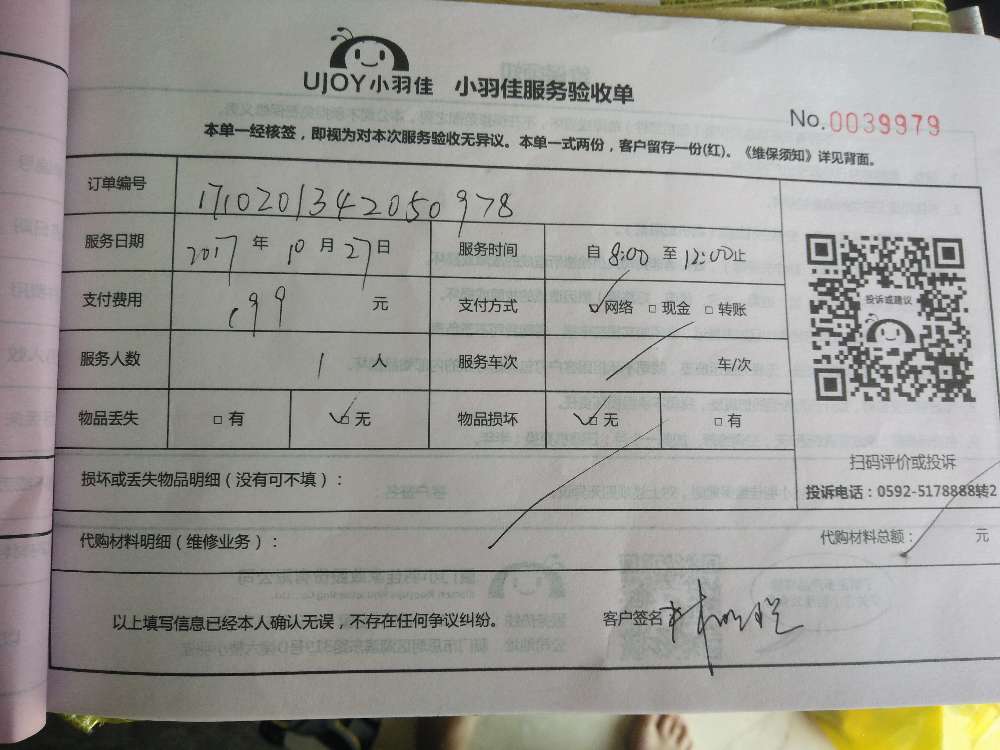 UJOY小羽佳 小羽佳服务验收单
No.0039979
本单一经核签，即视为对本次服务验收无异议。本单一式两份，客户留存一份(红)。《维保须知》详见背面。
订单编号 1710201342050978
服务日期 2017 年 10 月 27 日 服务时间 自 8:00 至 12:00 止
支付费用 199 元 支付方式 ☑网络 □现金 □转账
服务人数 1 人 服务车次 车/次
物品丢失 □有 ☑无 物品损坏 ☑无 □有
投诉或建议
扫码评价或投诉
损坏或丢失物品明细（没有可不填）：
投诉电话：0592-5178888转2
代购材料明细（维修业务）： 代购材料总额： 元
以上填写信息已经本人确认无误，不存在任何争议纠纷。 客户签名